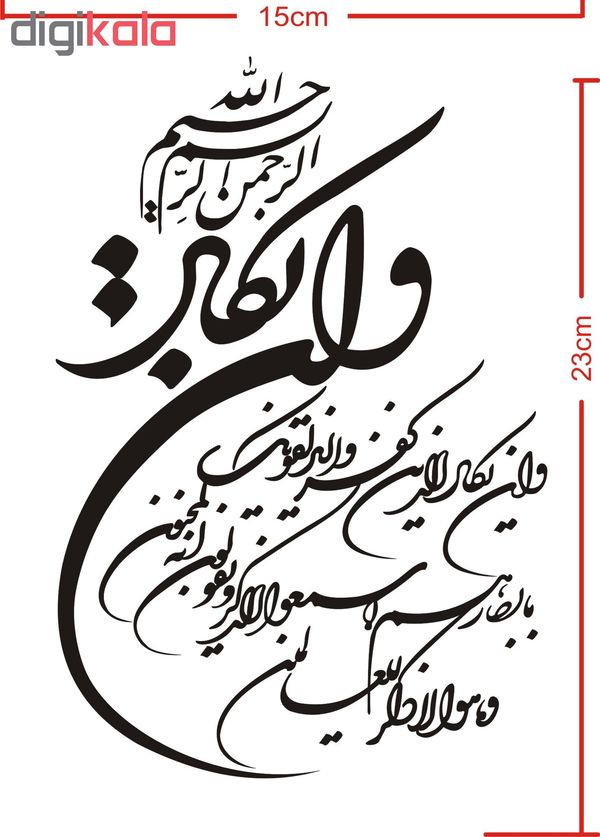 15cm
digikala
بسم الله
الرحمن الرحیم
وان یکاد
وان یکاد الذین کفروا لیزلقونک
بابصارهم لما سمعوا الذکر و یقولون انه لمجنون
و ما هو الا ذکر للعالمین
23cm